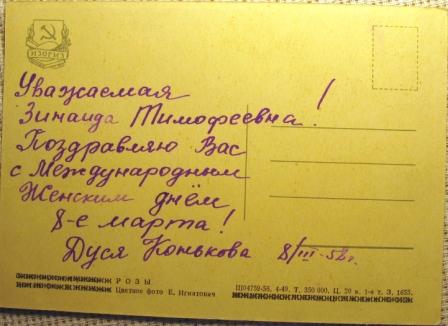 ИЗОГИЗ
Уважаемая
Зинаида Тимофеевна!
Поздравляю Вас
с Международным
Женским днём
8-е марта!
Дуся Конькова 8/III-58г.
РОЗЫ
Цветное фото Е. Игнатович
Ш04759-56. 4-49. Т. 350 000. Ц. 20 к. 1-я т. З. 1655.